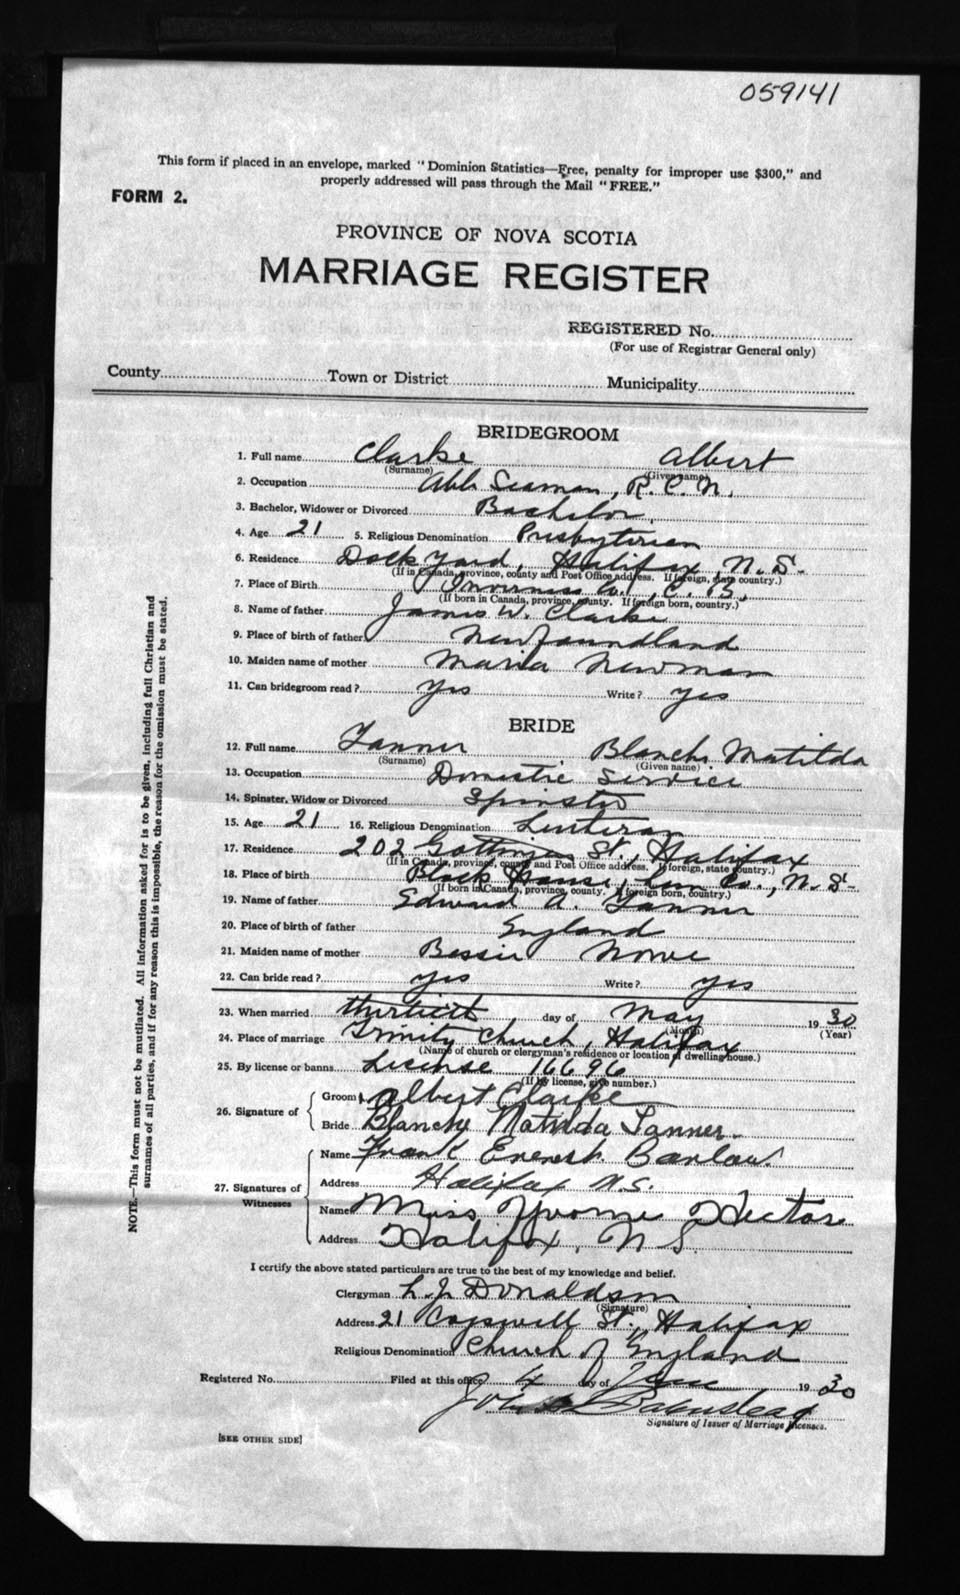 059141
This form if placed in an envelope, marked "Dominion Statistics—Free, penalty for improper use $300," and
properly addressed will pass through the Mail "FREE."
FORM 2.
PROVINCE OF NOVA SCOTIA
MARRIAGE REGISTER
REGISTERED No.
(For use of Registrar General only)
County Town or District Municipality
BRIDEGROOM
1. Full name Clarke Albert
(Surname) (Given name)
2. Occupation Able Seaman, R.C.N.
3. Bachelor, Widower or Divorced Bachelor.
4. Age 21 5. Religious Denomination Presbyterian
6. Residence Dock Yard, Halifax, N.S.
(If in Canada, province, county and Post Office address. If foreign, state country.)
7. Place of Birth Inverness Co., C.B.
(If born in Canada, province, county. If foreign born, country.)
8. Name of father James W. Clarke
9. Place of birth of father Newfoundland
10. Maiden name of mother Maria Newman
11. Can bridegroom read? Yes Write? yes
BRIDE
12. Full name Tanner Blanche Matilda
(Surname) (Given name)
13. Occupation Domestic Service
14. Spinster, Widow or Divorced Spinster
15. Age 21 16. Religious Denomination Lutheran
17. Residence 202 Gottingen St., Halifax
(If in Canada, province, county and Post Office address. If foreign, state country.)
18. Place of birth Block House, Lun Co., N.S.
(If born in Canada, province, county. If foreign born, country.)
19. Name of father Edward A. Tanner
20. Place of birth of father England
21. Maiden name of mother Bessie Nowe
22. Can bride read? yes Write? yes
23. When married thirtieth day of May 1930
(Month) (Year)
24. Place of marriage Trinity Church, Halifax
(Name of church or clergyman's residence or location of dwelling house.)
25. By license or banns License 16696
(If by license, give number.)
26. Signature of
Groom Albert Clarke
Bride Blanche Matilda Tanner
27. Signatures of Witnesses
Name Frank Everest Barlow
Address Halifax N.S.
Name Miss Yvonne Hector
Address Halifax, N.S.
I certify the above stated particulars are true to the best of my knowledge and belief.
Clergyman L. J. Donaldson
(Signature)
Address 21 Cogswell St., Halifax
Religious Denomination Church of England
Registered No. Filed at this office 4 day of June 1930
John
Signature of Issuer of Marriage Licenses.
[SEE OTHER SIDE]
NOTE.—This form must not be mutilated. All information asked for is to be given, including full Christian and
surnames of all parties, and if for any reason this is impossible, the reason for the omission must be stated.